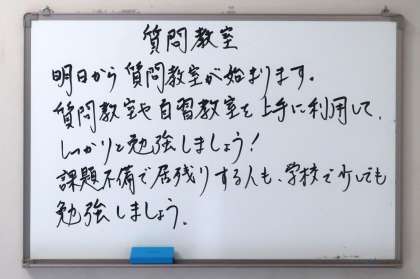 質問教室
明日から質問教室が始まります。
質問教室や自習教室を上手に利用して、
しっかりと勉強しましょう!
課題不備で居残りする人も、学校で少しでも
勉強しましょう。